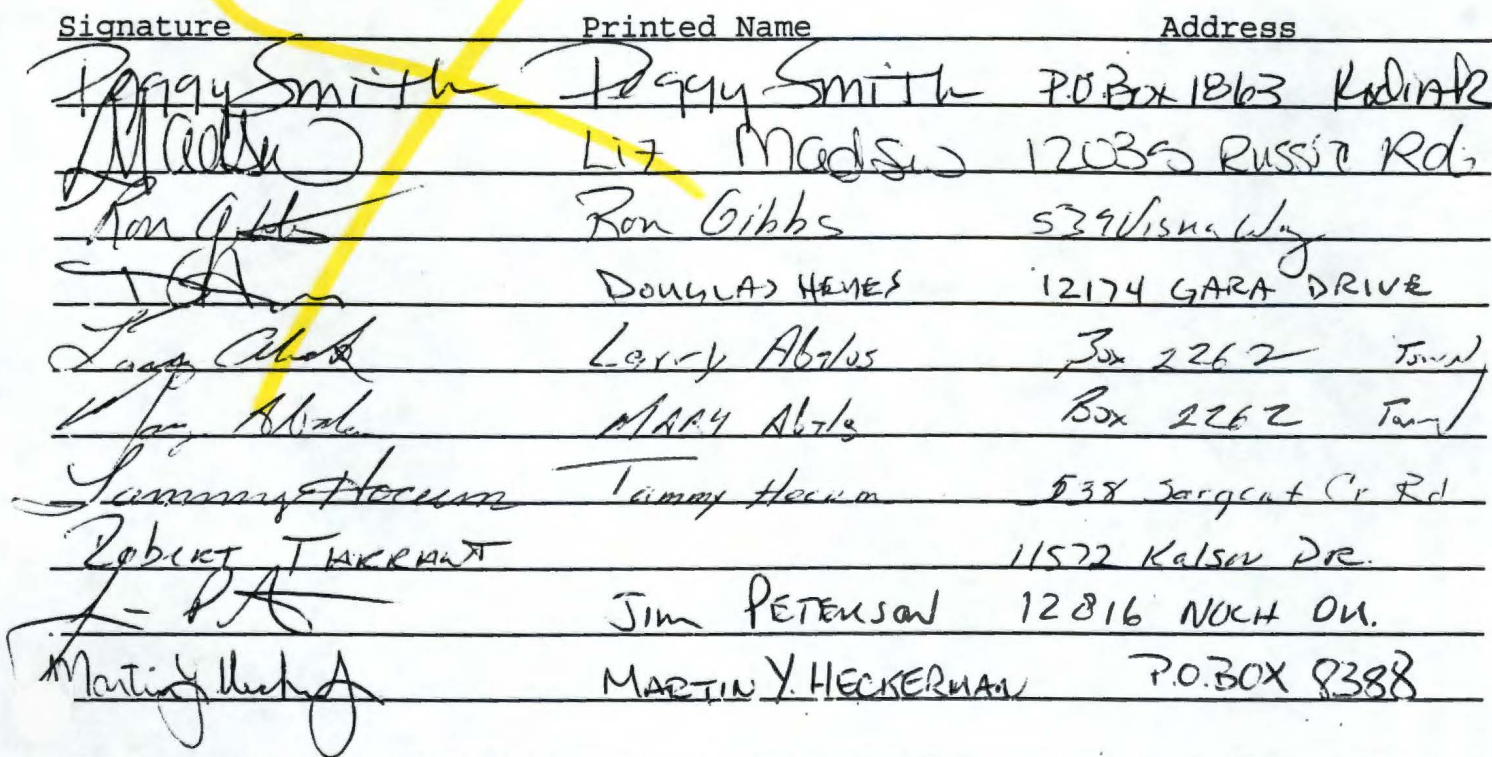 Signature Printed Name Address
Peggy Smith Peggy Smith P.O. Box 1863 Kodiak
Liz Madsen 12039 Russia Rd.
Ron Gibbs Ron Gibbs 539 Way
DOUGLAS HEYES 12174 GARA DRIVE
Larry Box 2262 Town
MARY Box 2262 Town
Tammy Hocum Tammy Hocum 538 Sargent Cr Rd
Robert TARRANT 11572 Kalsin DR.
Jim PETERSON 12816 NOCH DR.
MARTIN Y. HECKERMAN P.O. BOX 8388